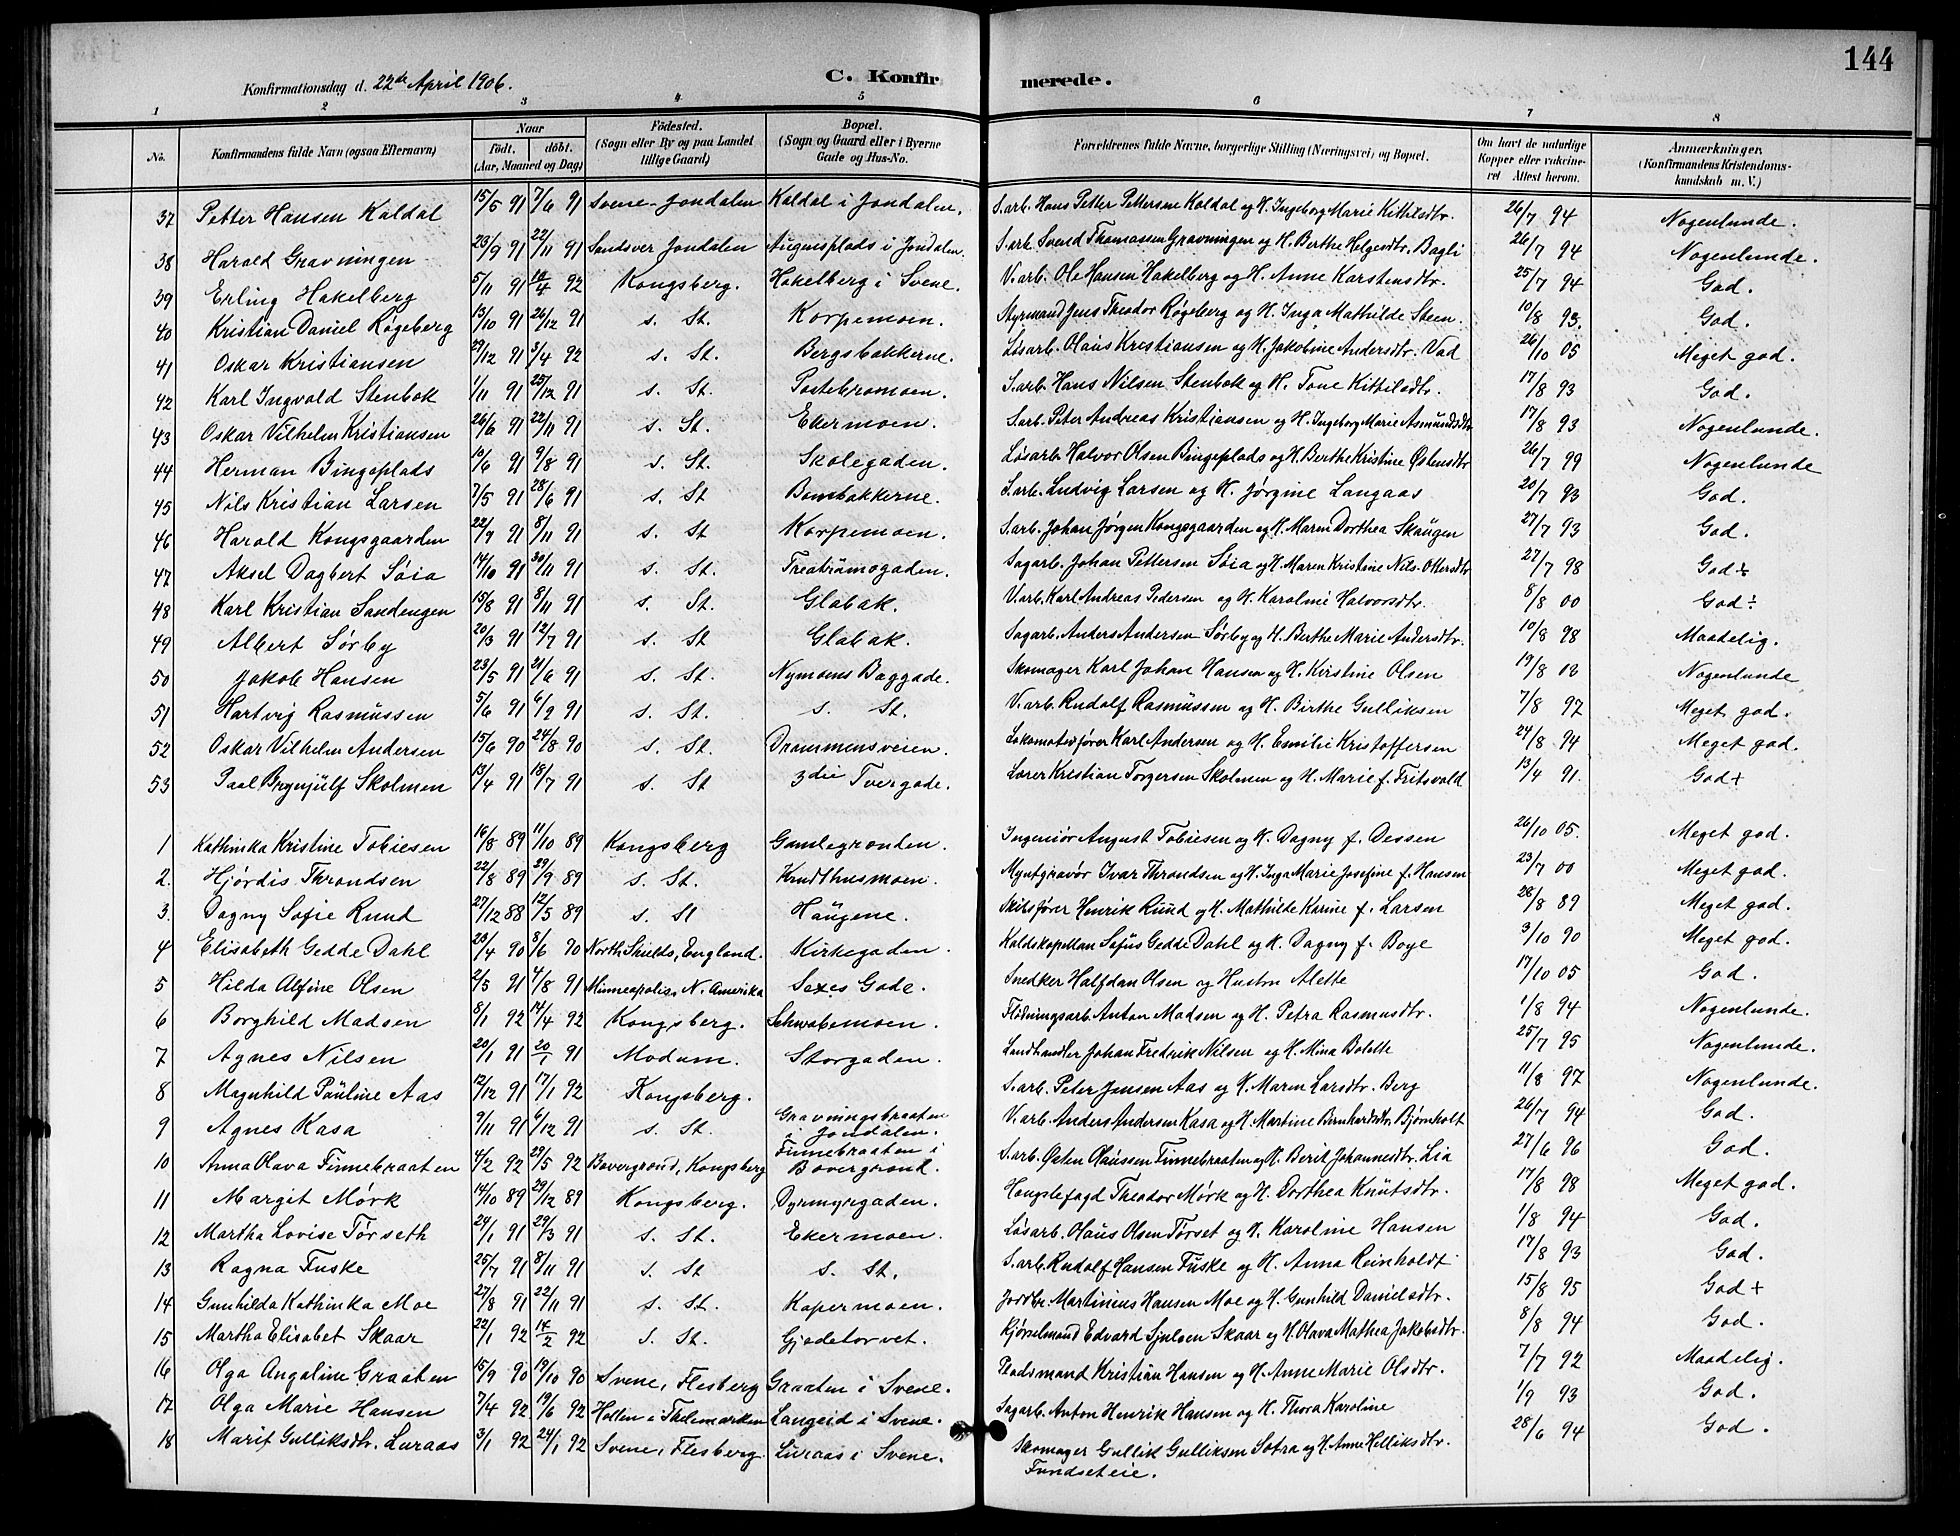 144
Konfirmationsdag d. 22de April 1906.
C. Konfirmerede.
1 2 3 4 5 6 7 8
No. Konfirmandens fulde Navn (ogsaa Efternavn) Naar födt. döbt. (Aar, Maaned og Dag) Födested. (Sogn eller By og paa Landet tillige Gaard) Bopæl. (Sogn og Gaard eller i Byerne Gade og Hus-No. Forældrenes fulde Navne, borgerlige Stilling (Næringsvei) og Bopæl. Om havt de naturlige Kopper eller vakcineret Attest herom. Anmærkninger, (Konfirmandens Kristendomskundskab m. V.)
37 Petter Hansen Kaldal 15/5 91 7/6 91 Svene-Jondalen Kaldal i Jondalen. S. arb. Hans Petter Pettersen Kaldal og H. Ingeborg Marie Kittilsdtr. 26/7 94 Nogenlunde.
38 Harald Gravningen 23/9 91 22/11 91 Sandsver Jondalen Augunsplads i Jondalen. S. arb. Svend Thomassen Gravningen og H. Berthe Helgesdtr. Bagli 26/7 94 Nogenlunde.
39 Erling Hakelberg 5/11 91 10/4 92 Kongsberg. Hakelberg i Svene. V. arb. Ole Hansen Hakelberg og H. Anne Karstensdtr. 25/7 94 God.
40 Kristian Daniel Røgeberg 13/10 91 26/12 91 s. St. Korpemoen. Styrmand Jens Theodor Røgeberg og H. Inga Mathilde Steen. 10/8 93. God.
41 Oskar Kristiansen 29/12 91 3/4 92 s. St. Bergsbakkerne. Løsarb. Olaus Kristiansen og H. Jakobine Andersdtr. Vad 26/10 05 Meget god.
42 Karl Ingvald Stenbok 1/11 91 25/12 91 s. St. Postebromoen. S. arb. Hans Nilsen Stenbok og H. Tone Kittilsdtr. 17/8 93 God.
43 Oskar Vilhelm Kristiansen 26/6 91 22/11 91 s. St. Ekermoen. S. arb. Peter Andreas Kristiansen og H. Ingeborg Marie Asmundsdtr 17/8 93 Nogenlunde.
44 Herman Bingeplads 10/6 91 9/8 91 s. St. Skolegaden. Løsarb. Halvor Olsen Bingeplads og H. Berthe Kristine Østensdtr 26/7 99 Nogenlunde
45 Nils Kristian Larsen 7/5 91 28/6 91 s. St Bombakkerne. S. arb. Ludvig Larsen og H. Jørgine Langaas 20/7 93 God.
46 Harald Kongsgaarden 22/7 91 8/11 91 s. St. Korpemoen. S. arb. Johan Jørgen Kongsgaarden og H. Maren Dorthea Skaugen 27/7 93 God.
47 Aksel Dagbert Søia 14/10 91 30/11 91 s. St. Treaträmogaden. Sagarb. Johan Pettersen Søia og H. Maren Kristine Nils-Ottersdtr 27/7 98 God÷
48 Karl Kristian Sandengen 15/8 91 8/11 91 s. St. Glabak. V. arb. Karl Andreas Pedersen og H. Karoline Halvorsdtr. 8/8 00 God÷
49 Albert Sørby 20/3 91 12/7 91 s. St Glabak. Sagarb. Anders Andersen Sørby og H. Berthe Marie Andersdtr. 10/8 98 Maadelig.
50 Jakob Hansen 23/5 91 21/6 91 s. St. Nymoens Baggade. Skomager Karl Johan Hansen og H. Kristine Olsen 19/8 03 Nogenlunde
51 Hartvig Rasmussen 5/6 91 6/9 91 s. St. s. St. V. arb. Rudolf Rasmussen og H. Birthe Gulliksen 7/8 97 Meget god.
52 Oskar Vilhelm Andersen 15/6 90 24/8 90 s. St. Drammensveien. Lokomotivfører Karl Andersen og H. Emilie Kristoffersen 24/8 94 Meget god.
53 Paal Brynjulf Skolmen 13/4 91 18/7 91 s. St 3die Tvergade. Lærer Kristian Torgersen Skolmen og H. Marie f. Fritsvold 13/4 91. God+
1 Kathinka Kristine Tobiesen 16/8 89 11/10 89 Kongsberg Gamlegronden. Ingeniør August Tobiesen og H. Dagny f. Dessen 26/10 05. Meget god.
2. Hjørdis Throndsen 22/8 89 29/9 89 s. St. Krudthusmoen. Myntgravør Ivar Throndsen og H. Inga Marie Josefine f. Hansen 23/7 00 Meget god.
3. Dagny Sofie Ruud 27/12 88 12/5 89 s. St Haugene. Skibsfører Henrik Ruud og H. Mathilde Karine f. Larsen 28/8 89 Meget god.
4 Elisabeth Gedde Dahl 23/4 90 8/6 90 North Shields, England. Kirkegaden. Kaldskapellan Sofus Gedde Dahl og H. Dagny f. Boye 3/10 90 Meget god.
5 Hilda Alfine Olsen 2/5 91 4/8 91 Minneapolis, N. Amerika Sexes Gade. Snedker Halfdan Olsen og Hustru Alette 17/10 05 God.
6 Borghild Madsen 8/1 92 14/4 92 Kongsberg. Schwabemoen. Flødningsarb. Anton Madsen og H. Petra Rasmusdtr. 1/8 94 Nogenlunde.
7 Agnes Nilsen 20/1 91 20/1 91 Modum. Storgaden. Landhandler Johan Fredrik Nilsen og H. Mina Bolette 25/7 95 Nogenlunde.
8 Magnhild Pauline Aas 12/12 91 17/1 92 Kongsberg. S. arb. Peter Jensen Aas og H. Maren Larsdtr. Berg 11/8 97 Nogenlunde.
9 Agnes Kasa 9/11 91 6/12 91 s. St. Gravningsbraaten i Jondalen. V. arb. Anders Andersen Kasa og H. Martine Bernhardsdtr. Bjørnholt 26/7 94 God.
10 Anna Olava Finnebraaten 4/2 92 29/5 92 Bævergrend, Kongsberg Finnebraaten i Bævergrend. S. arb. Østen Olaussen Finnebraaten og H. Berit Johannesdtr. Lia 27/6 96 God.
11 Margit Mørk 14/10 89 29/12 89 Kongsberg. Dyrmyrgaden. Hengslefogd Theodor Mørk og H. Dorthea Knutsdtr. 17/8 98 Meget god.
12 Martha Lovise Tørseth 24/1 91 29/3 91 s. St. Ekermoen. Løsarb. Olaus Olsen Tørset og H. Karoline Hansen 1/8 94 God.
13 Ragna Fuske 25/7 91 8/11 91 s. St s. St. S. arb. Rudolf Hansen Fuske og H. Anna Reinholdt 17/8 93 God.
14 Gunhilda Kathinka Moe 27/8 91 22/11 91 s. St. Kapermoen. Jordbr. Martinius Hansen Moe og H. Gunhild Danielsdtr. 15/8 95 God+
15 Martha Elisabet Skaar 22/1 92 14/2 92 s. St. Gjedetorvet. Kjørselmand Edvard Sjulsen Skaar og H. Olava Mathea Jakobsdtr. 8/8 94 God.
16 Olga Angeline Graaten 15/9 90 19/10 90 Svene, Flesberg Graaten i Svene. Pladsmand Kristian Hansen og H. Anne Marie Olsdtr. 7/7 92 Maadelig.
17 Olga Marie Hansen 7/4 92 19/6 92 Hollen i Thelemarken Langeid i Svene. Sagarb. Anton Henrik Hansen og H. Thora Karoline 1/9 93 God.
18 Marit Gulliksdtr. Luraas 3/1 92 24/1 92 Svene, Flesberg. Luraas i Svene. Skomager Gullik Gulliksen Sotra og H. Anne Helliksdtr. Fundseteie. 28/6 94 God.